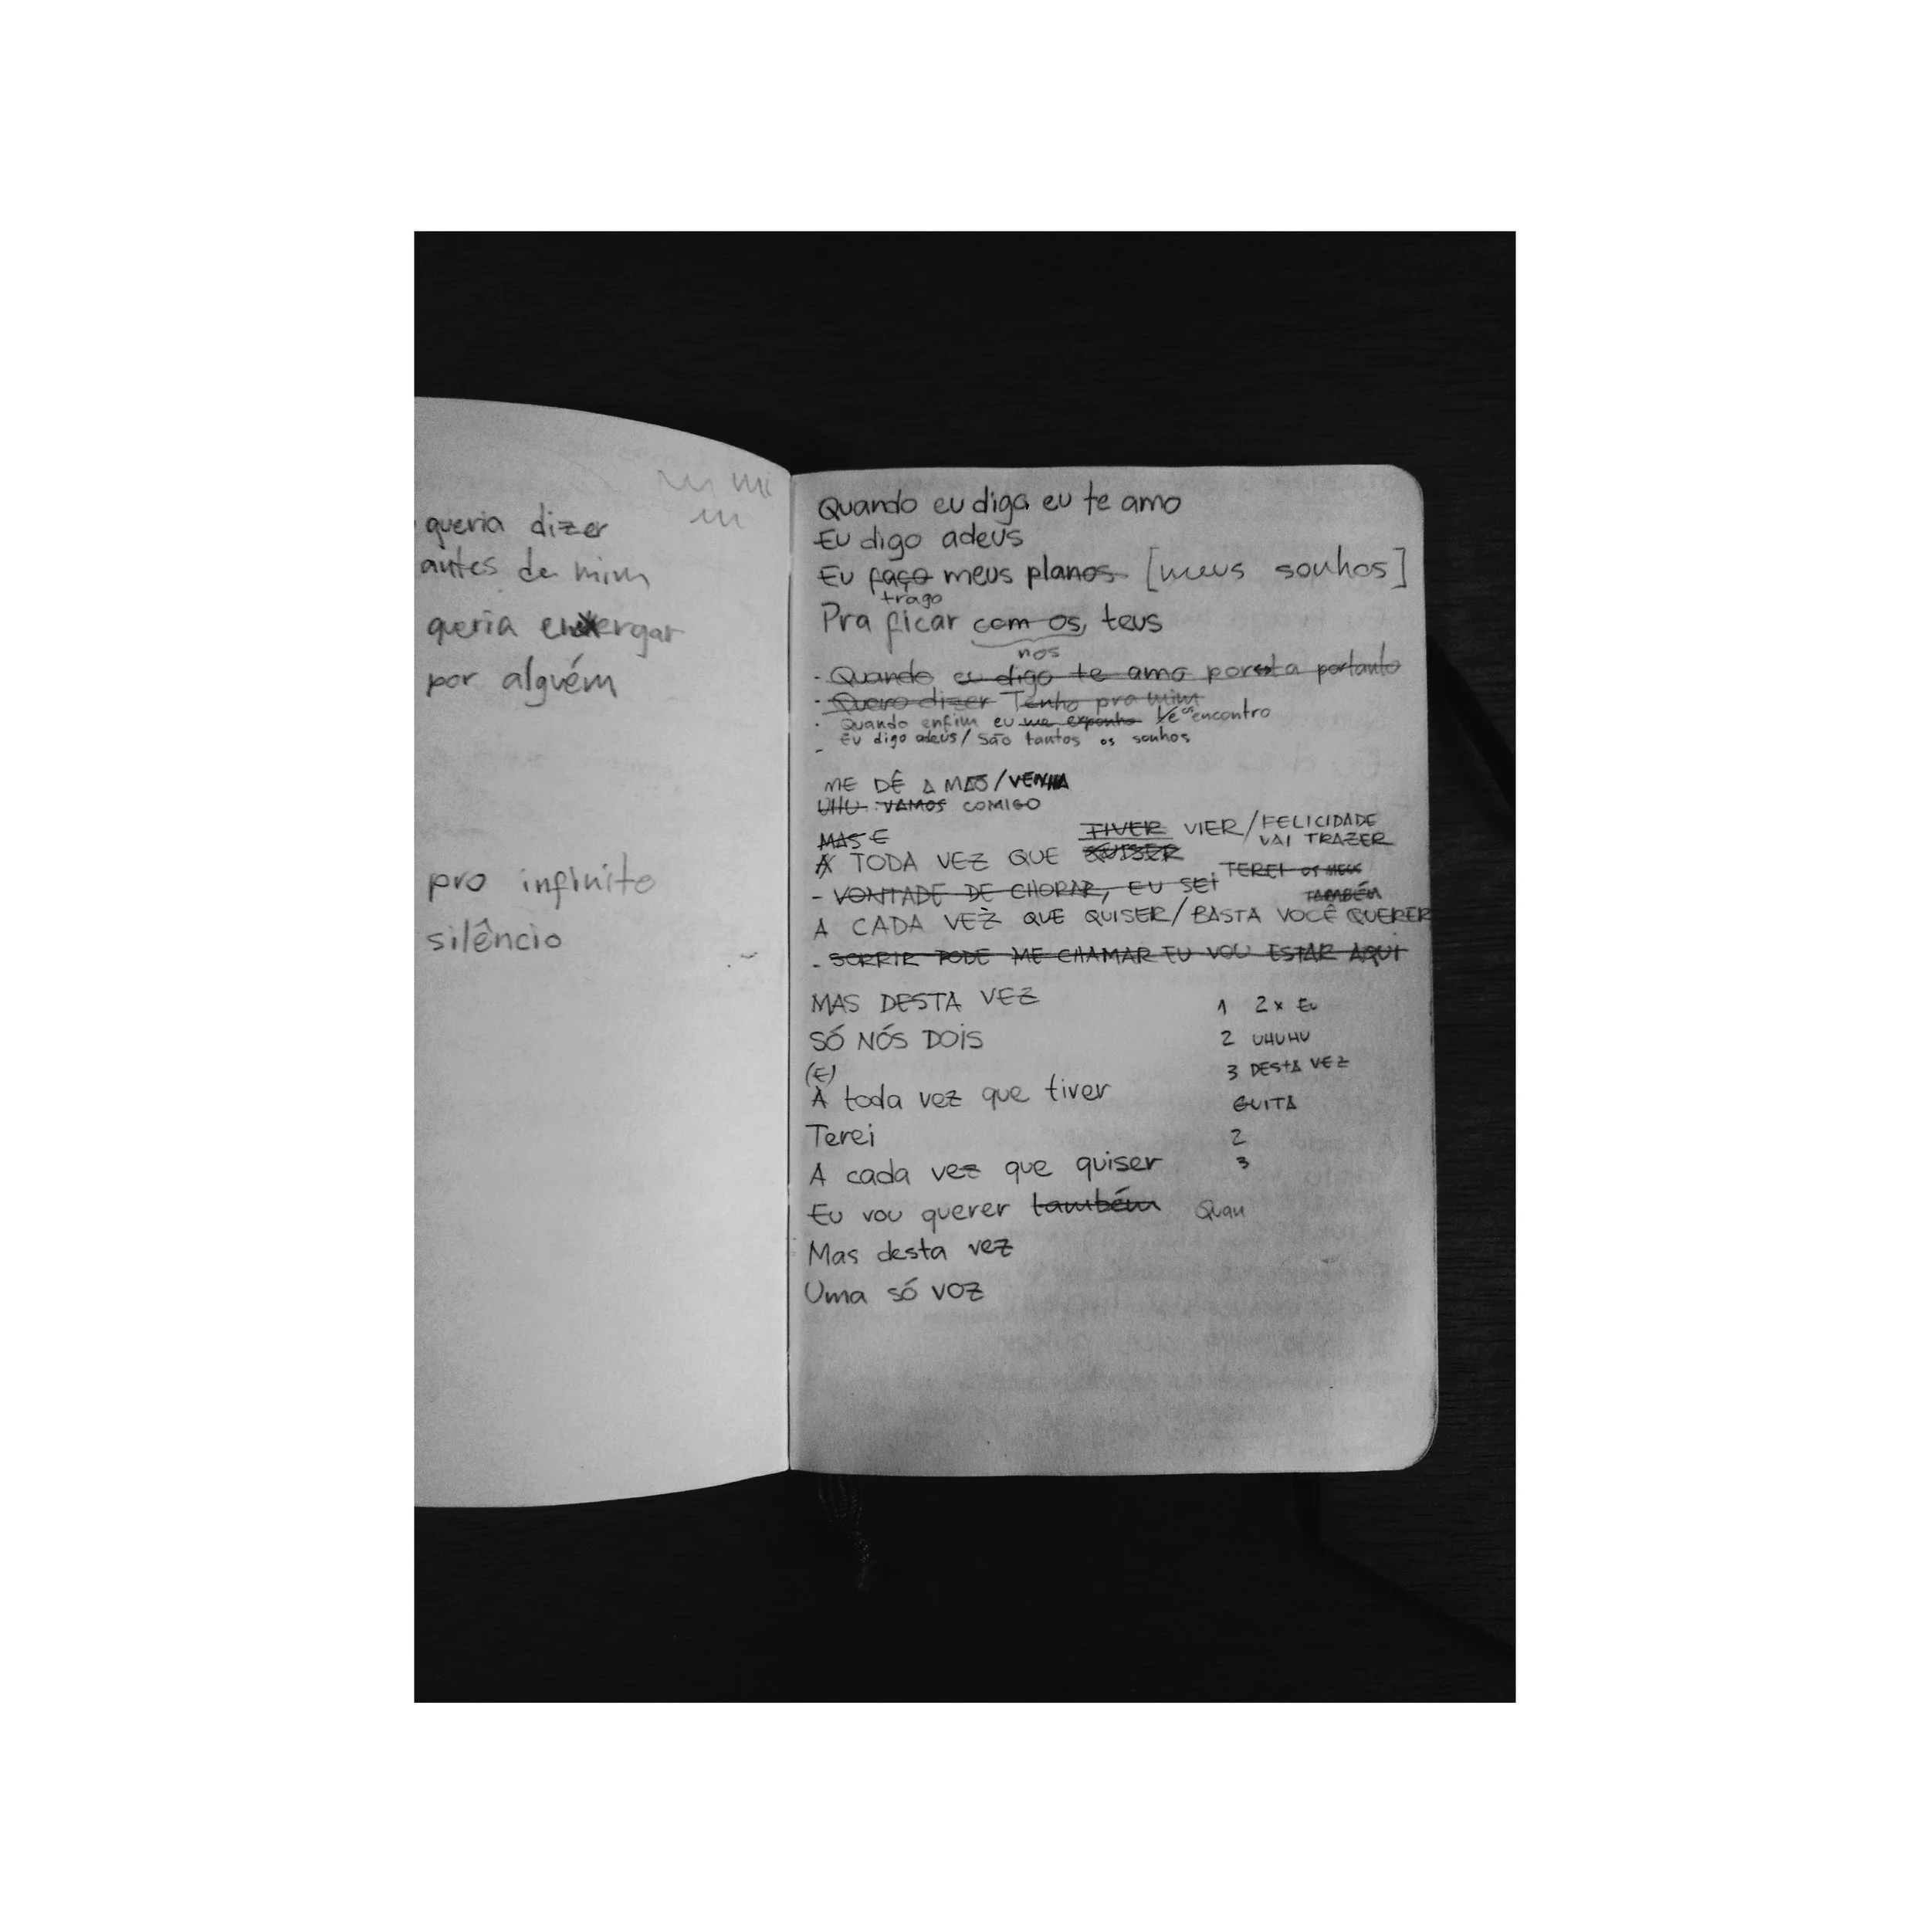 queria dizer
antes de mim
queria enxergar
por alguém
pro infinito
silêncio
Quando eu digo eu te amo
Eu digo adeus
Eu faço meus planos [meus sonhos]
trago
Pra ficar com os teus
nos
- Quando eu digo te amo porta portanto
- Quero dizer Tenho pra mim
- Quando enfim eu me exponho os encontro
Eu digo adeus/ São tantos os sonhos
ME DÊ A MÃO/VENHA
UHU VAMOS COMIGO
MAS E TIVER VIER/FELICIDADE
VAI TRAZER
A TODA VEZ QUE QUISER
TEREI OS MEUS
- VONTADE DE CHORAR, EU SEI
TAMBÉM
A CADA VEZ QUE QUISER/BASTA VOCÊ QUERER
- SORRIR PODE ME CHAMAR EU VOU ESTAR AQUI
MAS DESTA VEZ
SÓ NÓS DOIS
(E)
A toda vez que tiver
Terei
A cada vez que quiser
Eu vou querer também
Mas desta vez
Uma só voz
1 2x Eu
2 UHUHU
3 DESTA VEZ
GUITA
2
3
Quan